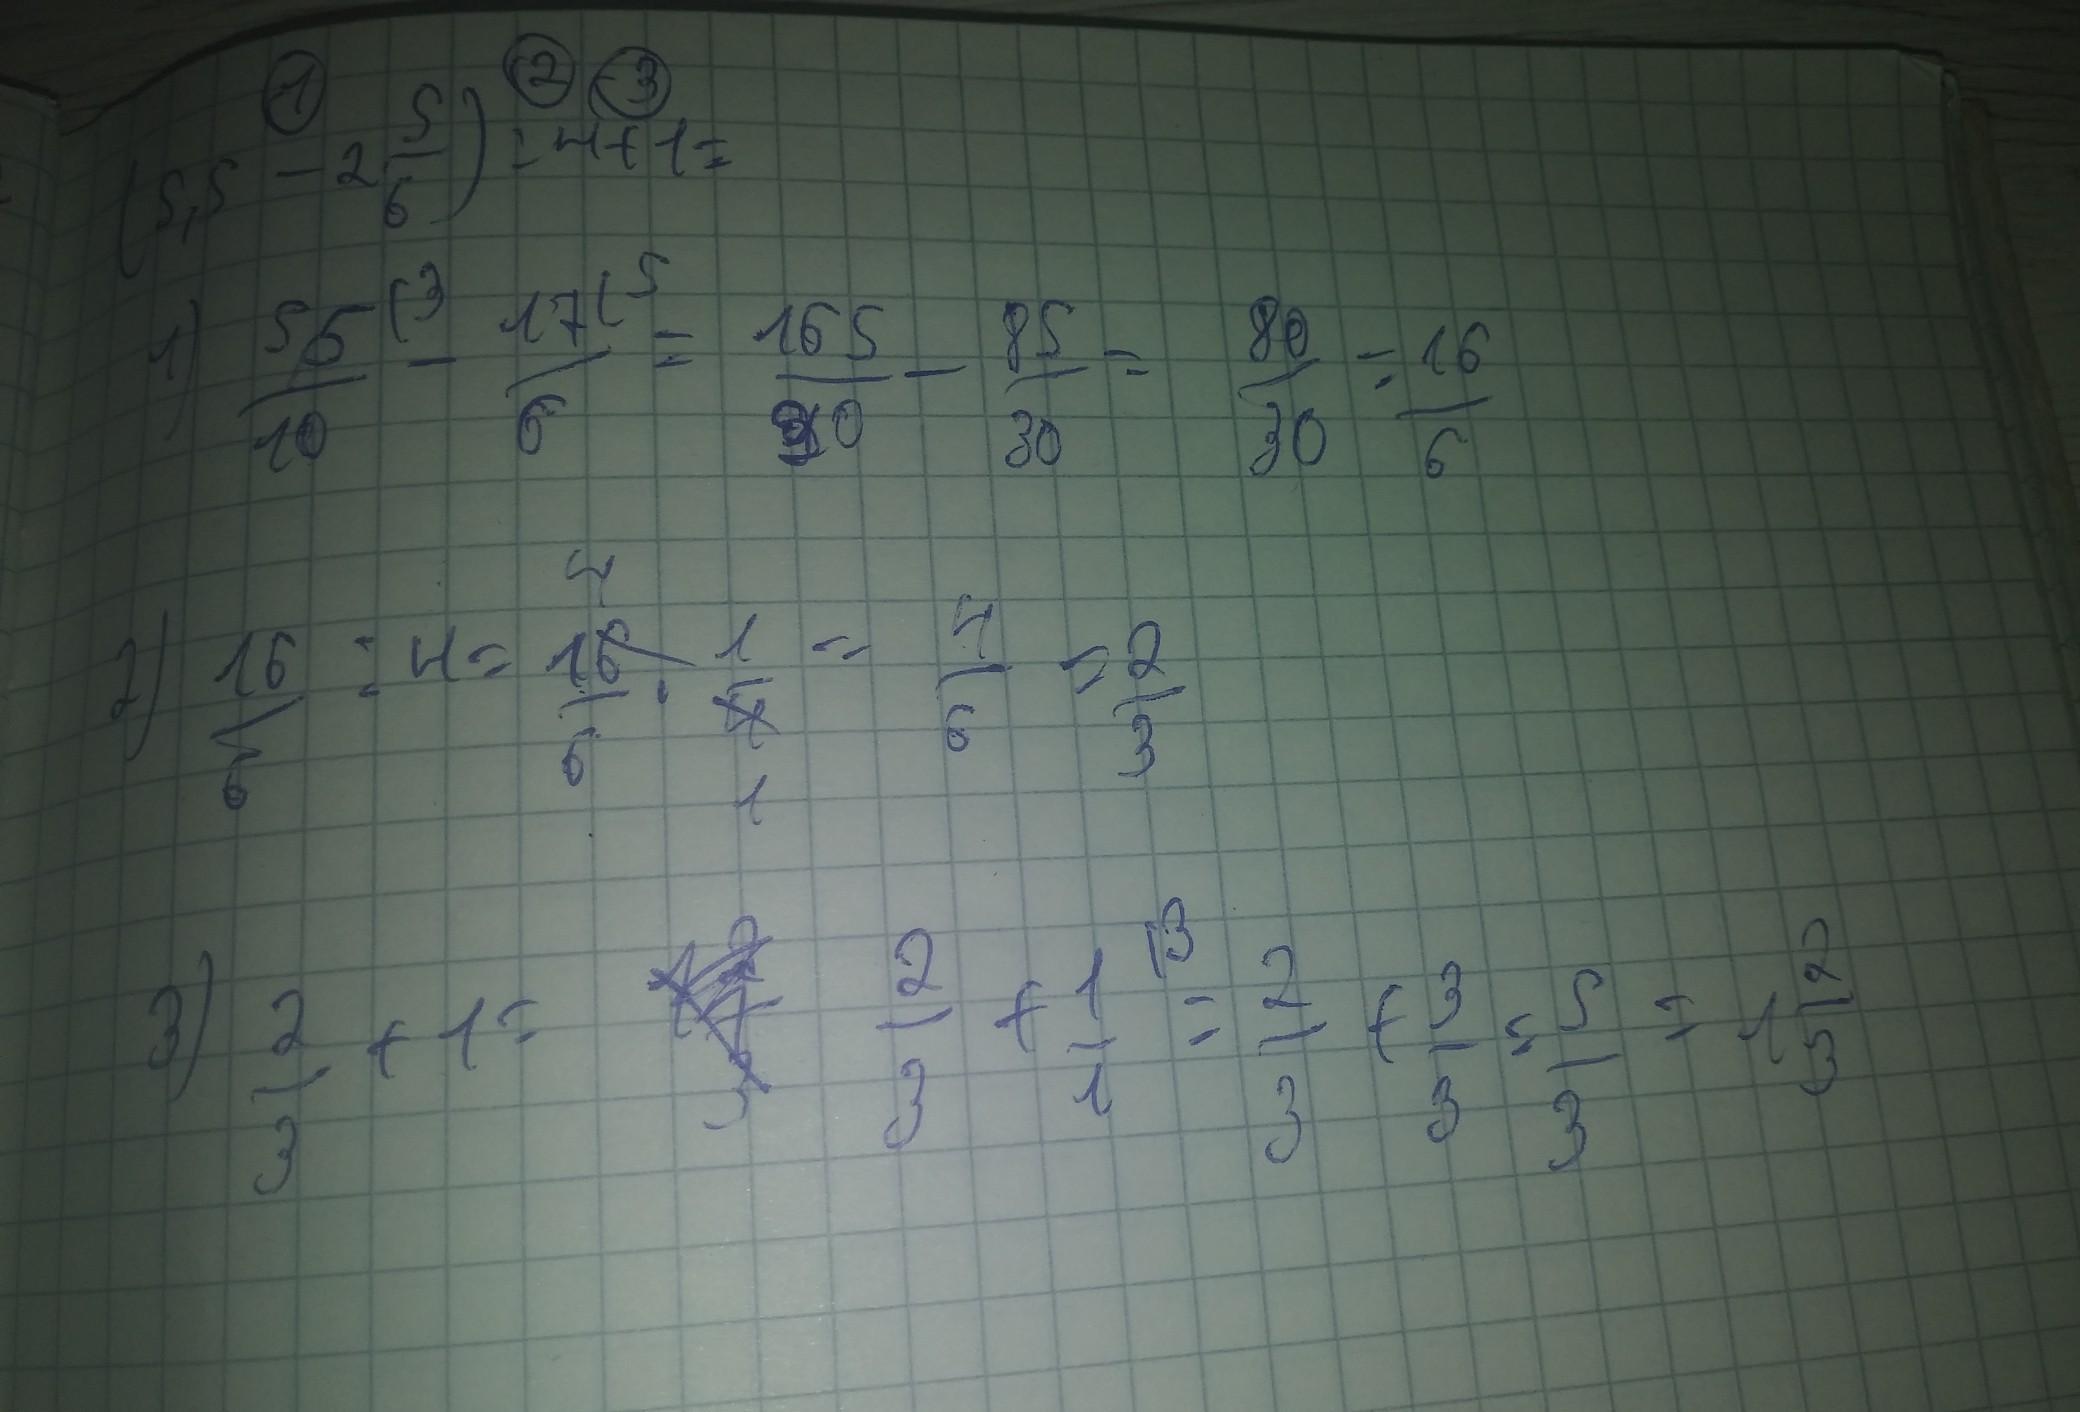 ① ② ③
(5,5 - 2 5/6) : 4 + 1 =
1) 55/10 (3 - 17/6 (5 = 165/30 - 85/30 = 80/30 = 16/6
2) 16/6 : 4 = 16/6 · 1/4 = 4/6 = 2/3
3) 2/3 + 1 = 2/3 + 1/1 (3 = 2/3 + 3/3 = 5/3 = 1 2/3